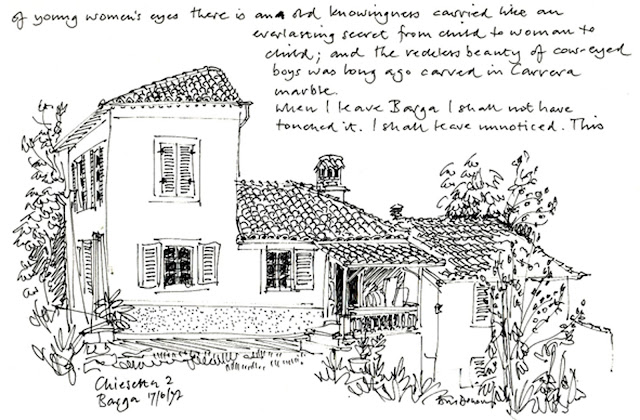 of young women's eyes there is an old knowingness carried like an
everlasting secret from child to woman to
child; and the redeless beauty of cow-eyed
boys was long ago carved in Carrera
marble.
When I leave Barga I shall not have
touched it. I shall leave unnoticed. This
Chiesetta 2
Barga 17/6/92